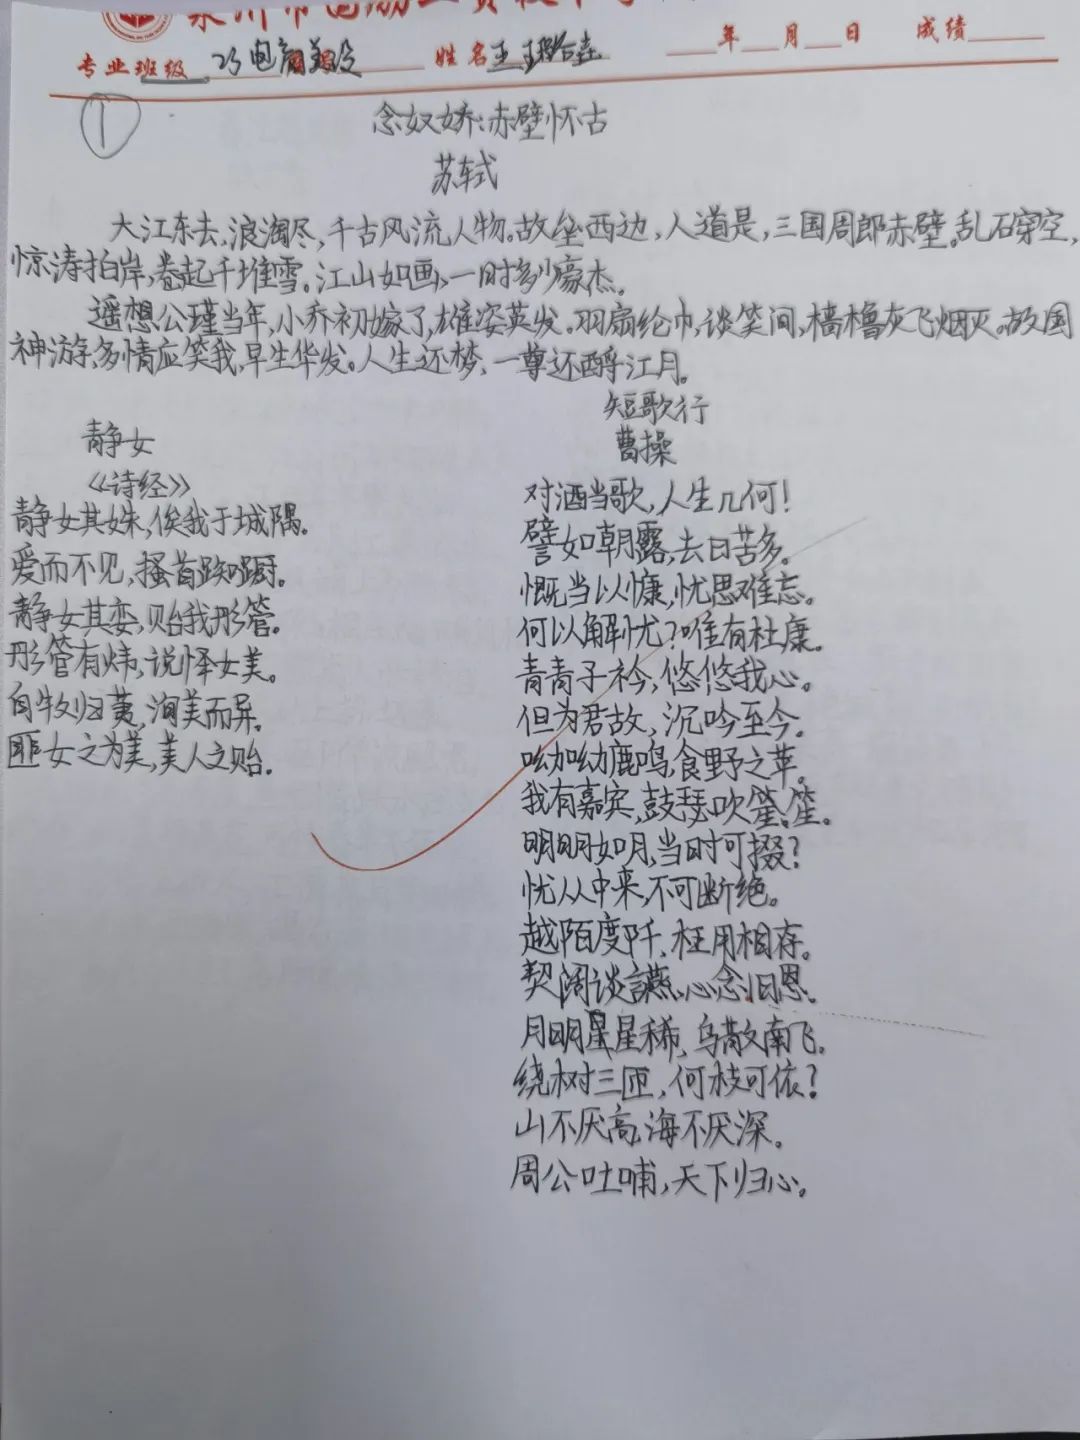 专业班级 姓名 年 月 日 成绩
①
念奴娇:赤壁怀古
苏轼
大江东去,浪淘尽,千古风流人物。故垒西边,人道是,三国周郎赤壁。乱石穿空,
惊涛拍岸,卷起千堆雪。江山如画,一时多少豪杰。
遥想公瑾当年,小乔初嫁了,雄姿英发。羽扇纶巾,谈笑间,樯橹灰飞烟灭。故国
神游,多情应笑我,早生华发。人生还梦,一尊还酹江月。
静女
《诗经》
静女其姝,俟我于城隅。
爱而不见,搔首踟蹰。
静女其娈,贻我彤管。
彤管有炜,说怿女美。
自牧归荑,洵美而异。
匪女之为美,美人之贻。
短歌行
曹操
对酒当歌,人生几何!
譬如朝露,去日苦多。
慨当以慷,忧思难忘。
何以解忧?唯有杜康。
青青子衿,悠悠我心。
但为君故,沉吟至今。
呦呦鹿鸣,食野之苹。
我有嘉宾,鼓瑟吹笙。笙。
明明如月,当时可掇?
忧从中来,不可断绝。
越陌度阡,枉用相存。
契阔谈讌,心念旧恩。
月明星星稀,乌散南飞。
绕树三匝,何枝可依?
山不厌高,海不厌深。
周公吐哺,天下归心。